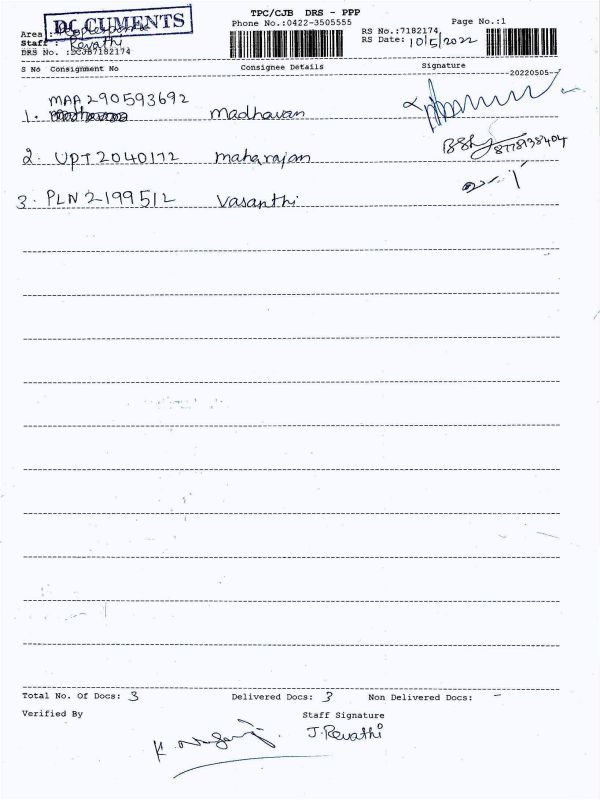 DOCUMENTS
TPC/CJB DRS - PPP
Phone No.:0422-3505555
Page No.:1
RS No.:7182174
RS Date: 10/5/2022
Area :
Staff : Revathi
DRS No. :DCJB7182174
S No Consignment No Consignee Details Signature
20220505
1. MAA290593692 Madhavan
2. UPT2040172 Maharajan 8778138404
3. PLN2199512 Vasanthi
Total No. Of Docs: 3 Delivered Docs: 3 Non Delivered Docs: -
Verified By Staff Signature
J.Revathi